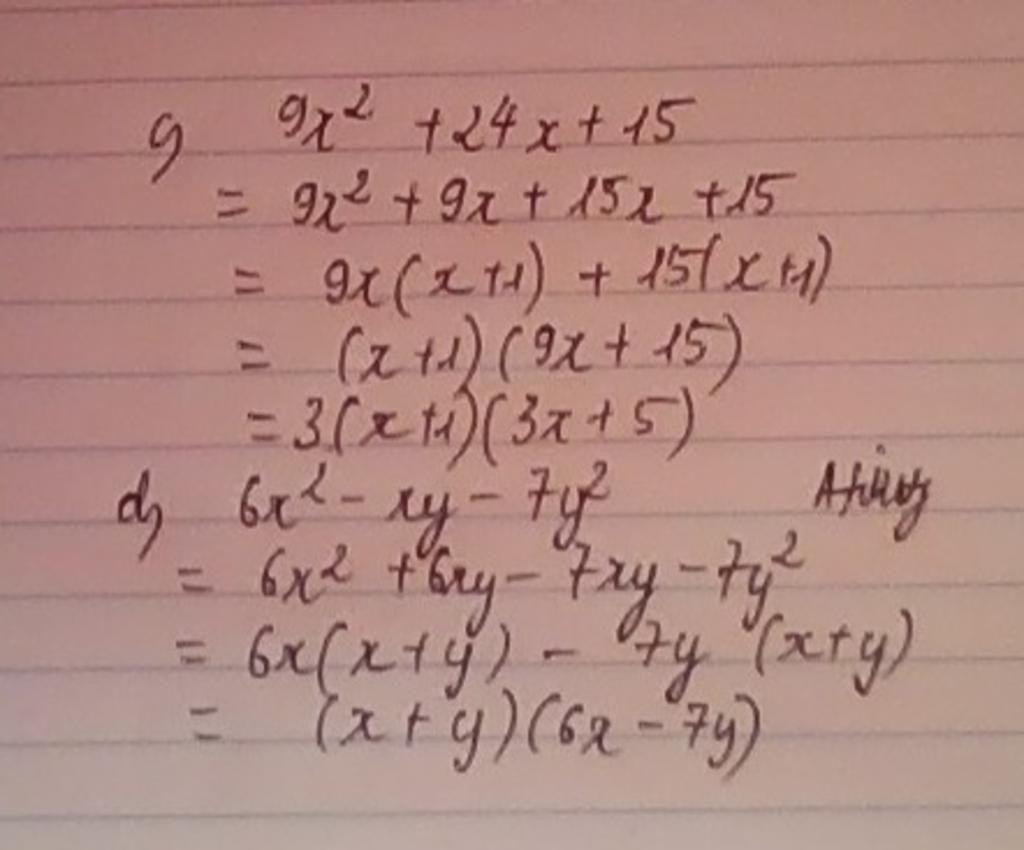 c) 9x² + 24x + 15
= 9x² + 9x + 15x + 15
= 9x(x+1) + 15(x+1)
= (x+1)(9x + 15)
= 3(x+1)(3x + 5)
d) 6x² - xy - 7y²
= 6x² + 6xy - 7xy - 7y²
= 6x(x+y) - 7y (x+y)
= (x+y)(6x - 7y)